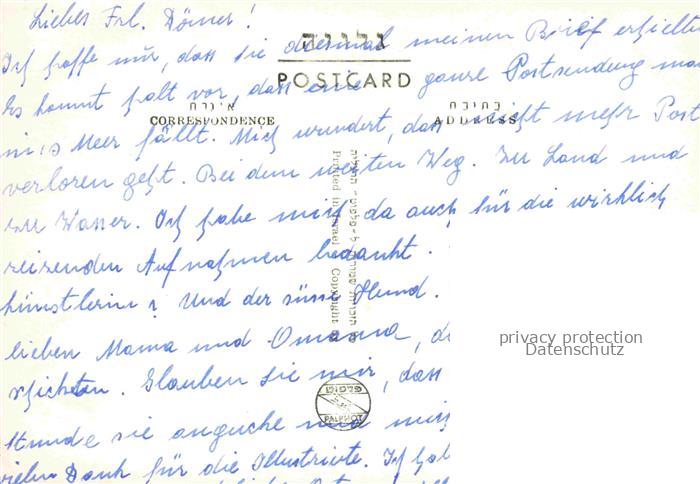 Liebes Frl. Dörner!
גלויה
Ich hoffe nur, dass sie diesmal meinen Brief erhielten
POSTCARD
Es kommt halt vor, dass eine ganze Postsendung ma
איגרת
כתובת
CORRESPONDENCE
ADDRESS
ins Meer fällt. Mich wundert, dass nicht mehr Post
verloren geht. Bei dem weiten Weg. Zu Land und
zu Wasser. Ich habe mich da auch für die wirklich
reizenden Aufnahmen bedankt.
Künstlerin? Und der süsse Hund.
lieben Mama und Omama, d
Glauben sie mir, dass
Stunde sie anguche und
vielen Dank für die Illustrirte. Ich hab
Printed in Israel Copyright ©
פלפוט
PALPHOT
privacy protection
Datenschutz